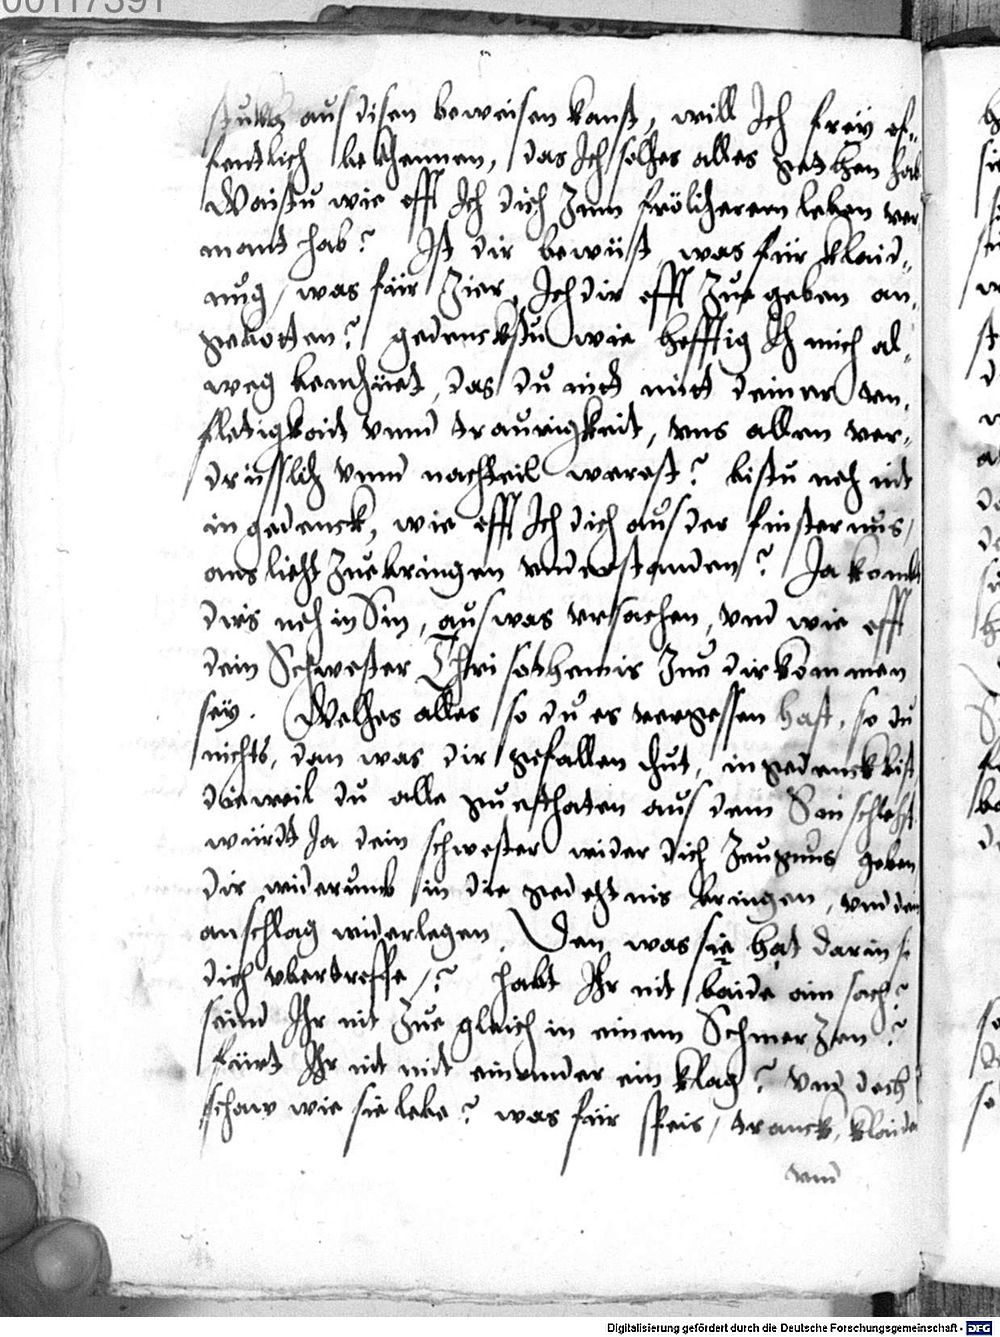 00117391
stukh aus disen beweisen kanst, will Ich freÿ of„
fentlich bekhennen, das Ich solhes alles gethan hab
Waistu wie offt Ich dich Zum frölicherem leben ver
mant hab? Ist dir bewüst was für klaid„
nug, was für Zier, Ich dir offt Zue geben an„
gebotten? gedenckstu wie hefftig Ich mich al„
weg bemhüet, das du nict mict deiner vn„
fletigkait vnnd traurigkeit, vns allen ver„
drüsslich vnnd nachteil werest? bistu noch nit
in gedenck, wie offt Ich dich aus der finsternus,
ans liecht Zuebringen vnderstanden? Ja kombt
dirs noch in Sin, aus was vrsachen, vnd wie offt
dein Schwester Chrisothemis Zue dir kommen
seÿ. Welhes alles so du es vergessen hast, so du
nichts, dan was dir gefallen thut, in gedenck bist
dieweil du alle guetthaten aus dem Sin schlehst
würdt Ja dein schwester wider dich Zeugnus geben
dir widerumb in die gedechtnis bringen, vnd dein
anschlag widerlegen. Den was sie hat darin si
dich vbertreffe? habt Ihr nit baide ain sach?
seind Ihr nit Zue gleich in einem Schmerzen?
fürt Ihr nit mit einander ein klag? vnd doch
schaw wie sie lebe? was für speis, tranck, klaider
vnd
Digitalisierung gefördert durch die Deutsche Forschungsgemeinschaft - DFG